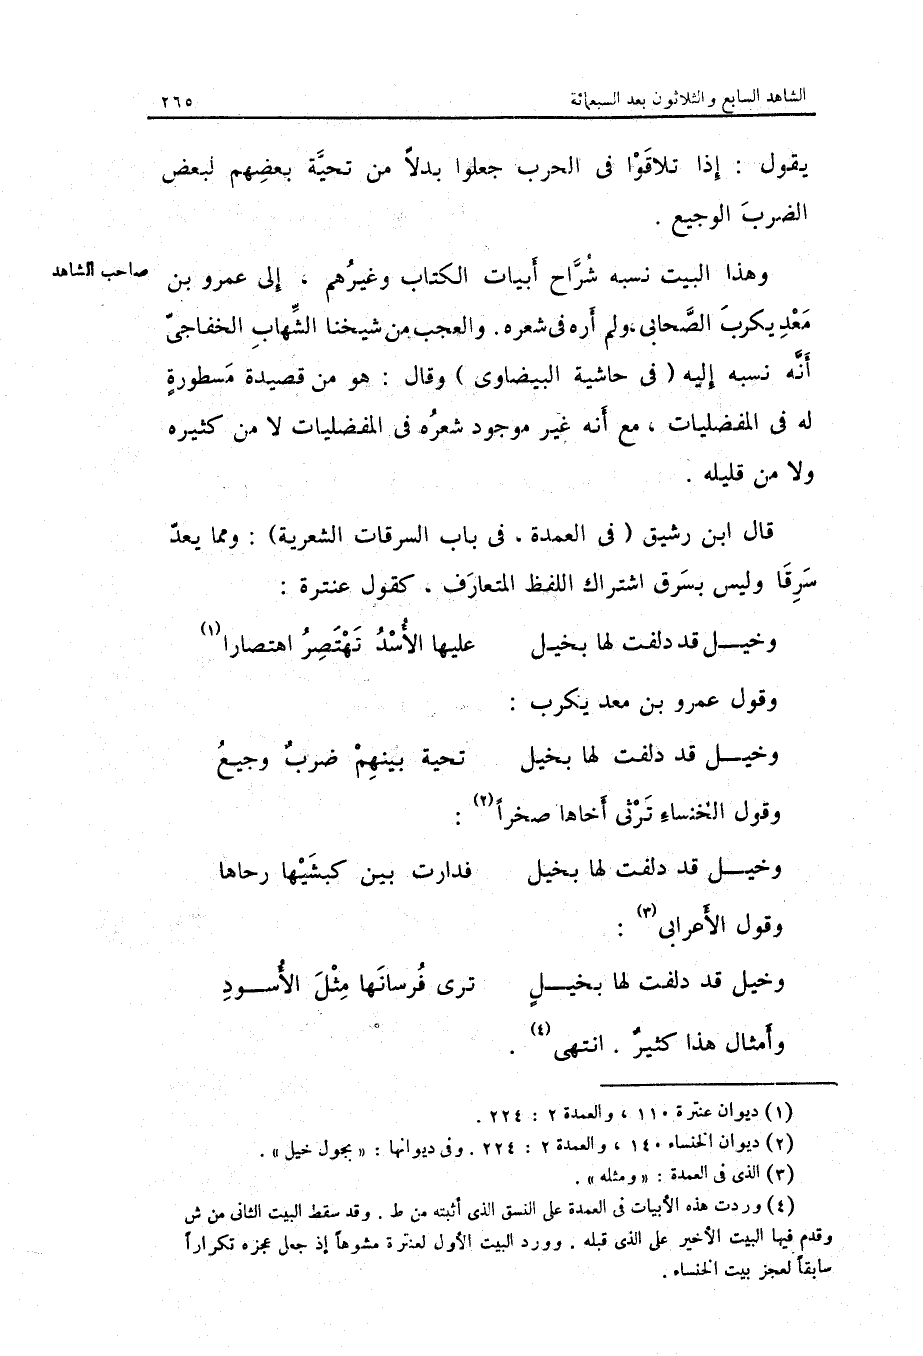 الشاهد السابع والثلاثون بعد السبعمائة ٢٦٥
يقول : إذا تلاقَوْا فى الحرب جعلوا بدلاً من تحيَّة بعضِهم لبعض
الضربَ الوجيع .
وهذا البيت نسبه شُرَّاح أبيات الكتاب وغيرُهم ، إلى عمرو بن
صاحب الشاهد
مَعْدِ يكربَ الصَّحابى،ولم أره فى شعره. والعجب من شيخنا الشِّهابِ الخفاجىّ
أنَّه نسبه إليه ( فى حاشية البيضاوى ) وقال : هو من قصيدة مَسطورةٍ
له فى المفضليات ، مع أنه غير موجود شعرُه فى المفضليات لا من كثيره
ولا من قليله .
قال ابن رشيق ( فى العمدة . فى باب السرقات الشعرية) : ومما يعدّ
سَرِقَا وليس بسَرق اشتراك اللفظ المتعارَف . كقول عنترة :
وخيـــل قد دلفت لها بخيل عليها الأُسْدُ تَهْتَصِرُ اهتصارا(١)
وقول عمرو بن معد يكرب :
وخيـــل قد دلفت لها بخيل تحية بينهِمْ ضربٌ وجيعُ
وقول الخنساءِ تَرْثى أخاها صخراً(٢) :
وخيـــل قد دلفت لها بخيل فدارت بين كبشَيْها رحاها
وقول الأَعرابى(٣) :
وخيل قد دلفت لها بخيـــلٍ ترى فُرسانَها مِثْلَ الأُســـودِ
وأَمثال هذا كثيرٌ . انتهى(٤) .
(١) ديوان عنترة ١١٠ ، والعمدة ٢ : ٢٢٤ .
(٢) ديوان الخنساء ١٤٠ ، والعمدة ٢ : ٢٢٤ . وفى ديوانها : « بجول خيل » .
(٣) الذى فى العمدة : « ومثله » .
(٤) وردت هذه الأبيات فى العمدة على النسق الذى أثبته من ط . وقد سقط البيت الثانى من ش
وقدم فيها البيت الأخير على الذى قبله . وورد البيت الأول لعنترة مشوهاً إذ جعل عجزه تكراراً
سابقاً لعجز بيت الخنساء .